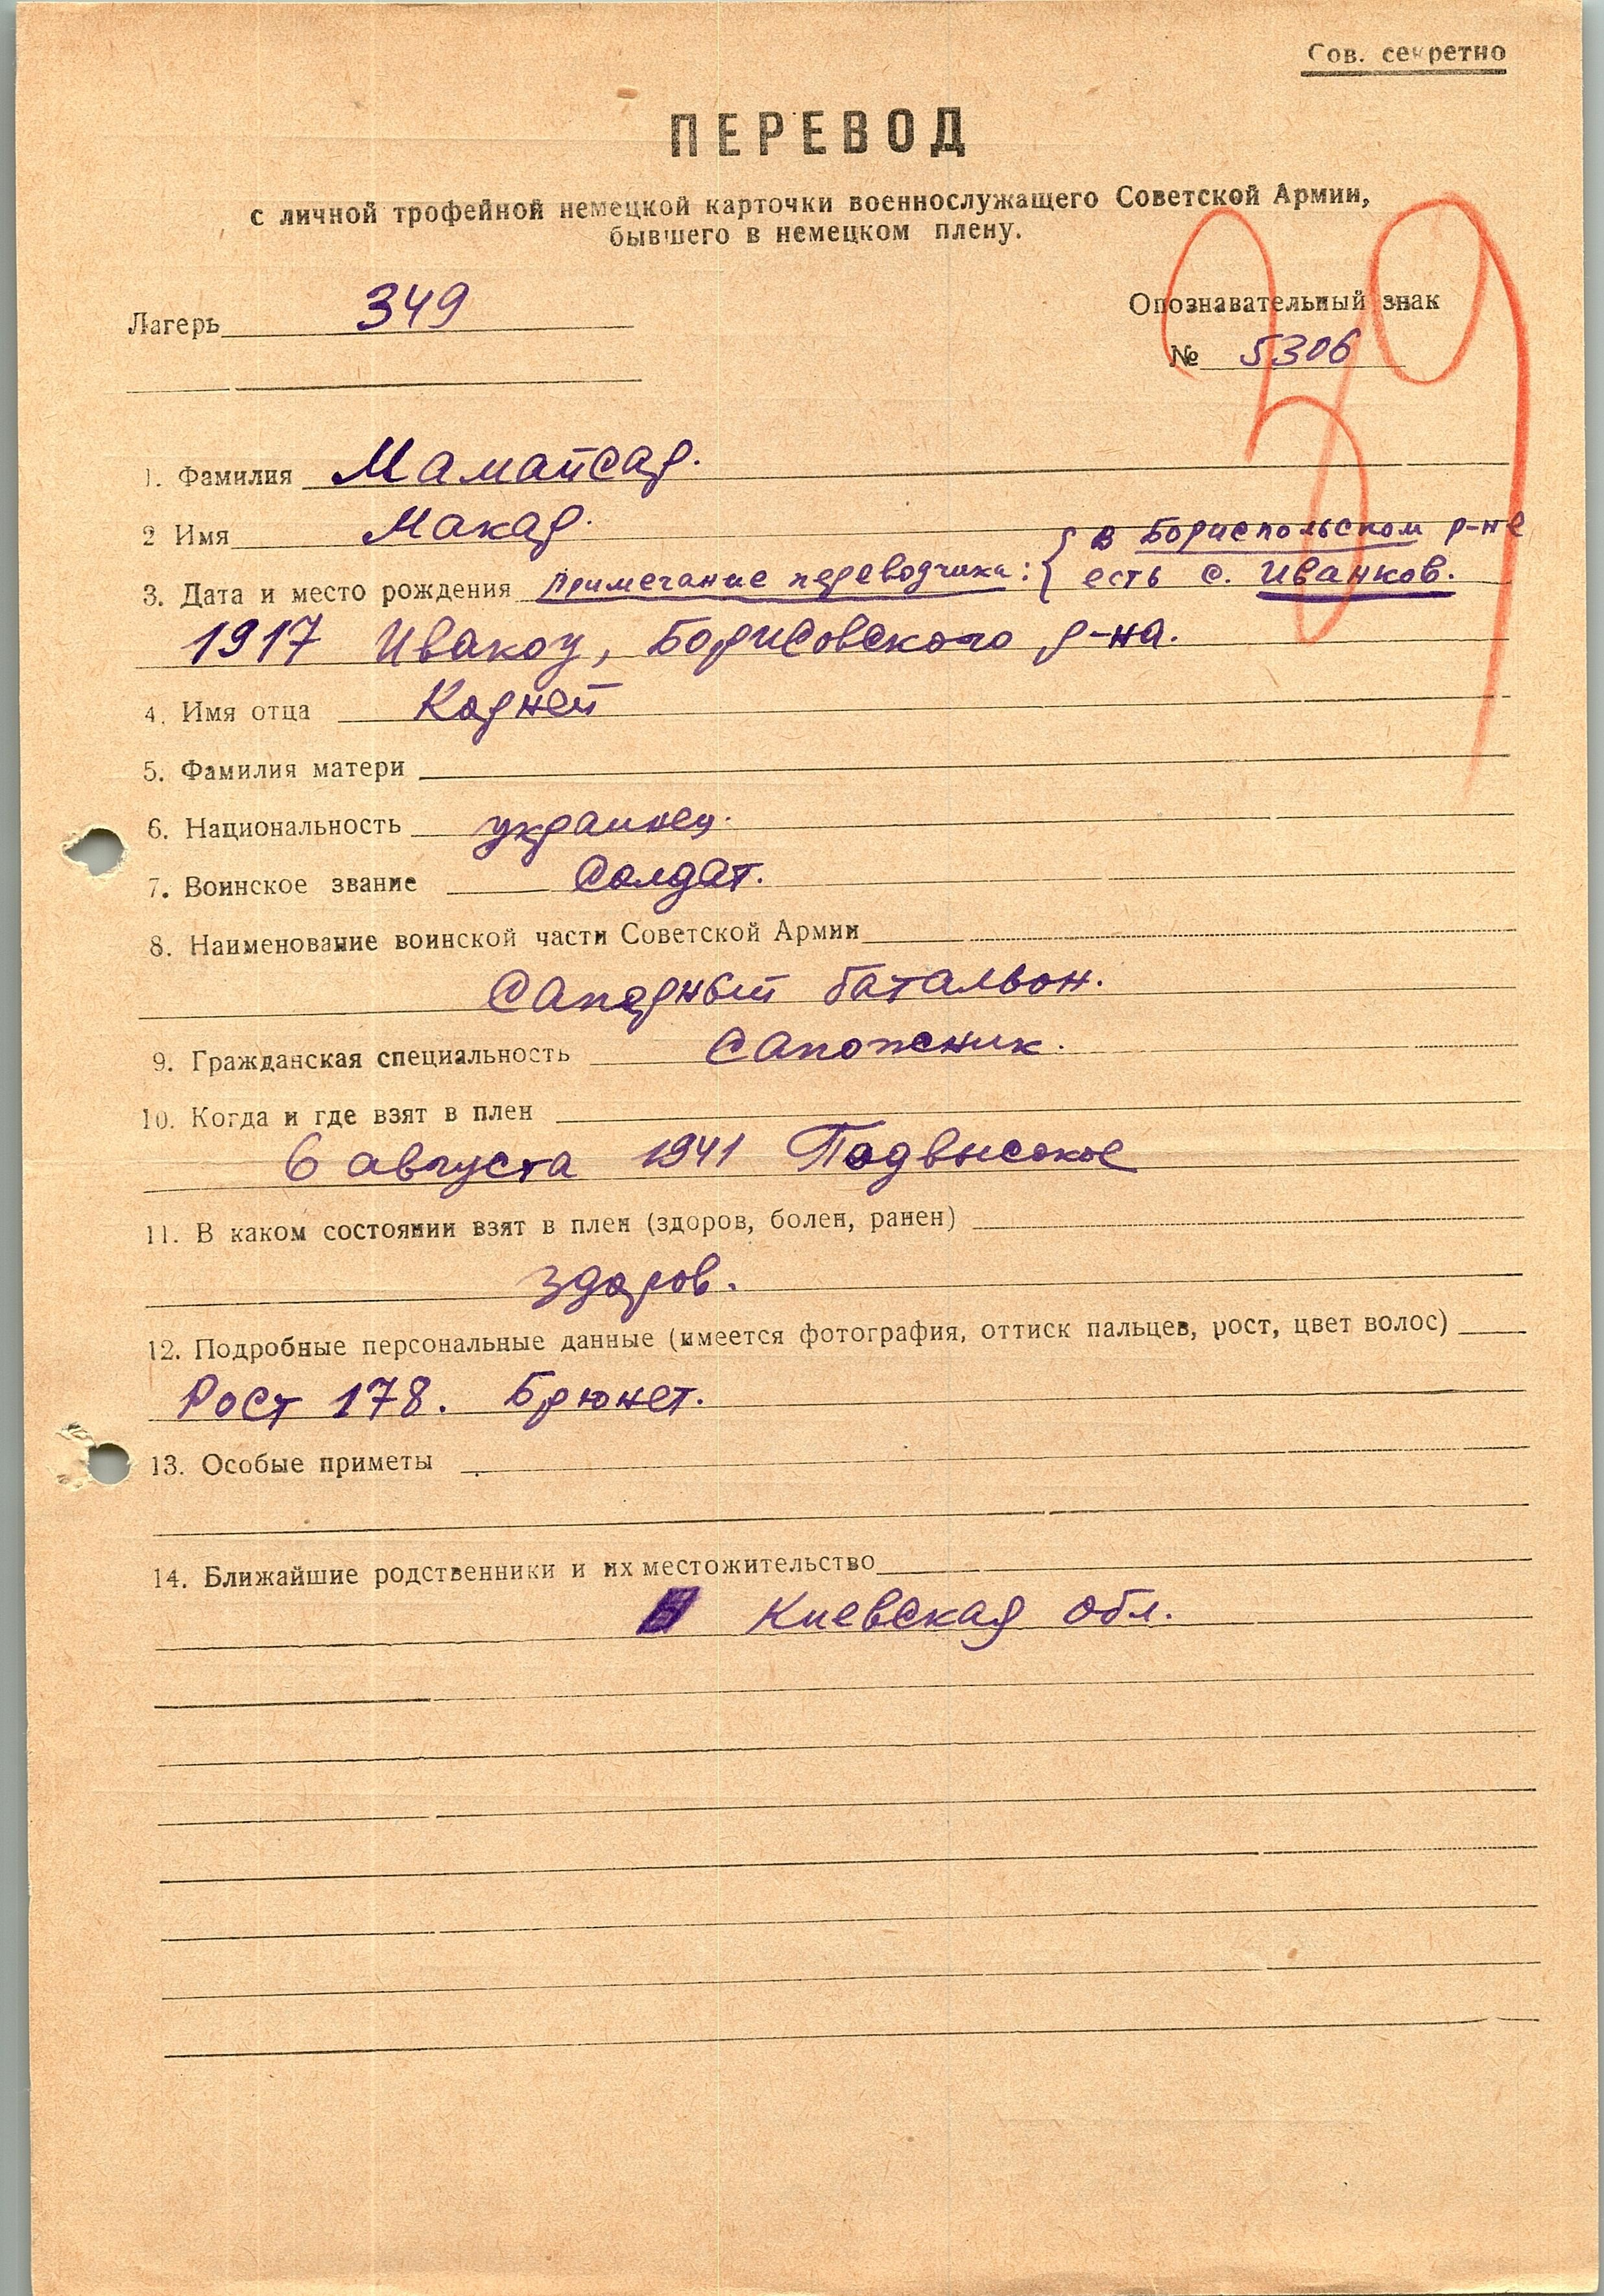 Сов. секретно
ПЕРЕВОД
с личной трофейной немецкой карточки военнослужащего Советской Армии,
бывшего в немецком плену.
Лагерь 349
Опознавательный знак
№ 5306
39
1. Фамилия Мамайсар.
2 Имя Макар.
3. Дата и место рождения Примечание переводчика: { в Бориспольском р-не
есть с. Иванков.
1917 Ивакоу, Борисовского р-на.
4. Имя отца Корней
5. Фамилия матери
6. Национальность украинец.
7. Воинское звание Солдат.
8. Наименование воинской части Советской Армии
Саперный батальон.
9. Гражданская специальность Сапожник.
10. Когда и где взят в плен
6 августа 1941 Подвысокое
11. В каком состоянии взят в плен (здоров, болен, ранен)
здоров.
12. Подробные персональные данные (имеется фотография, оттиск пальцев, рост, цвет волос)
Рост 178. Брюнет.
13. Особые приметы
14. Ближайшие родственники и их местожительство
Киевская обл.